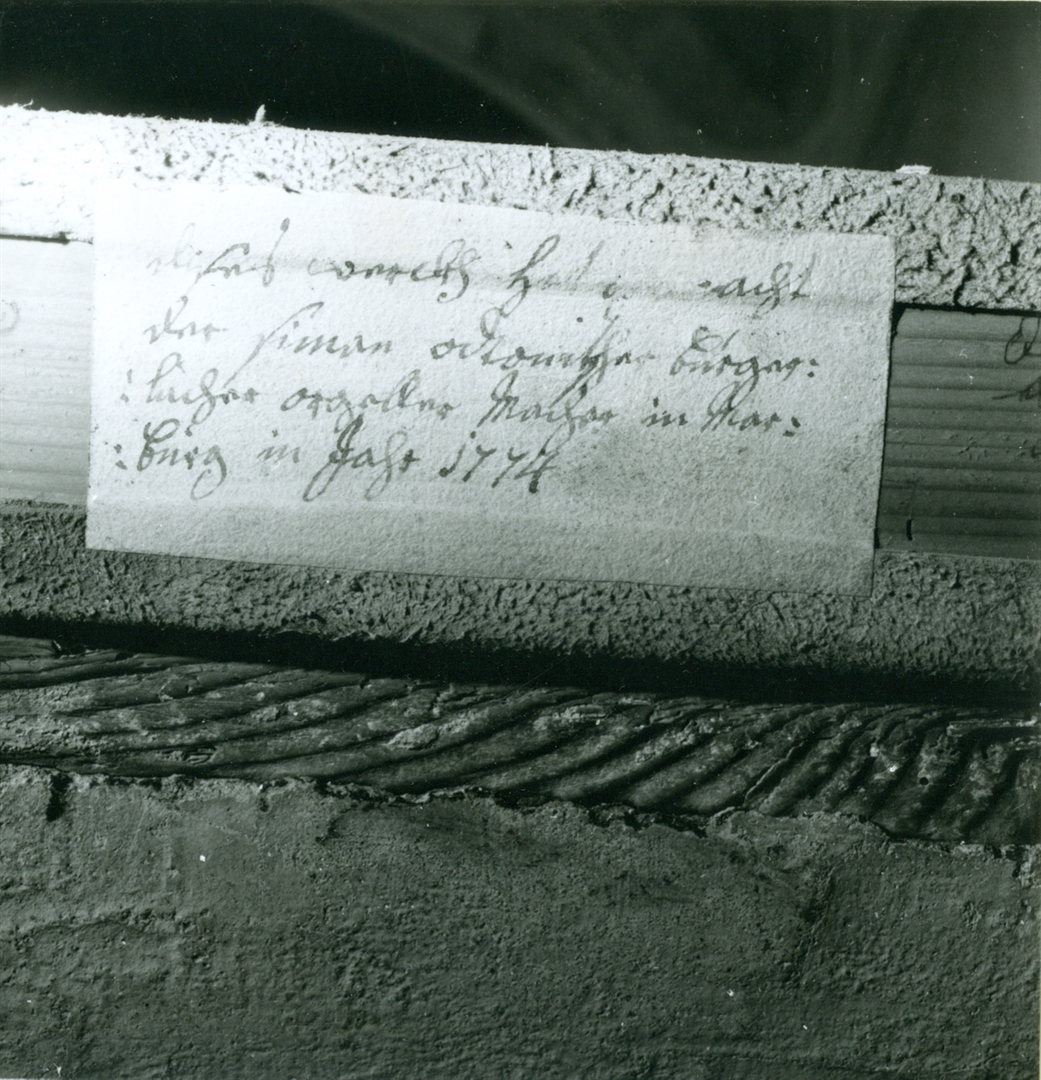 dises werckh Hat gemacht
der siman odtonitsher burger:
:licher orgeller Macher in Mar:
:burg in Jahr 1774